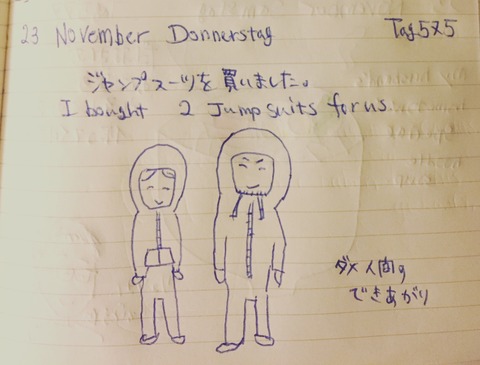 23 November Donnerstag
Tag 575
ジャンプスーツを買いました。
I bought 2 Jumpsuits for us
ダメ人間の
できあがり